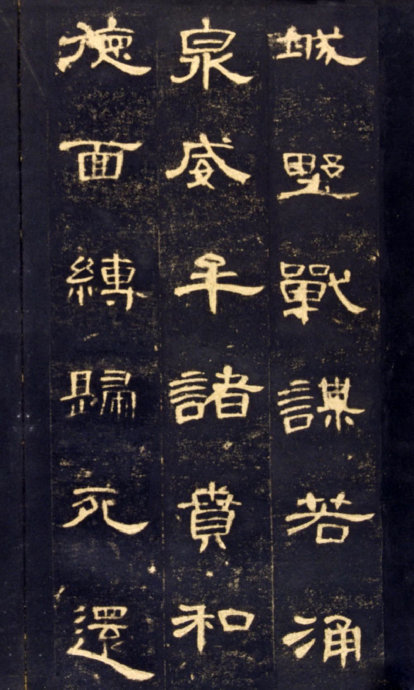 城墅戰謀若涌
泉威牟諸賁和
德面縛歸死還